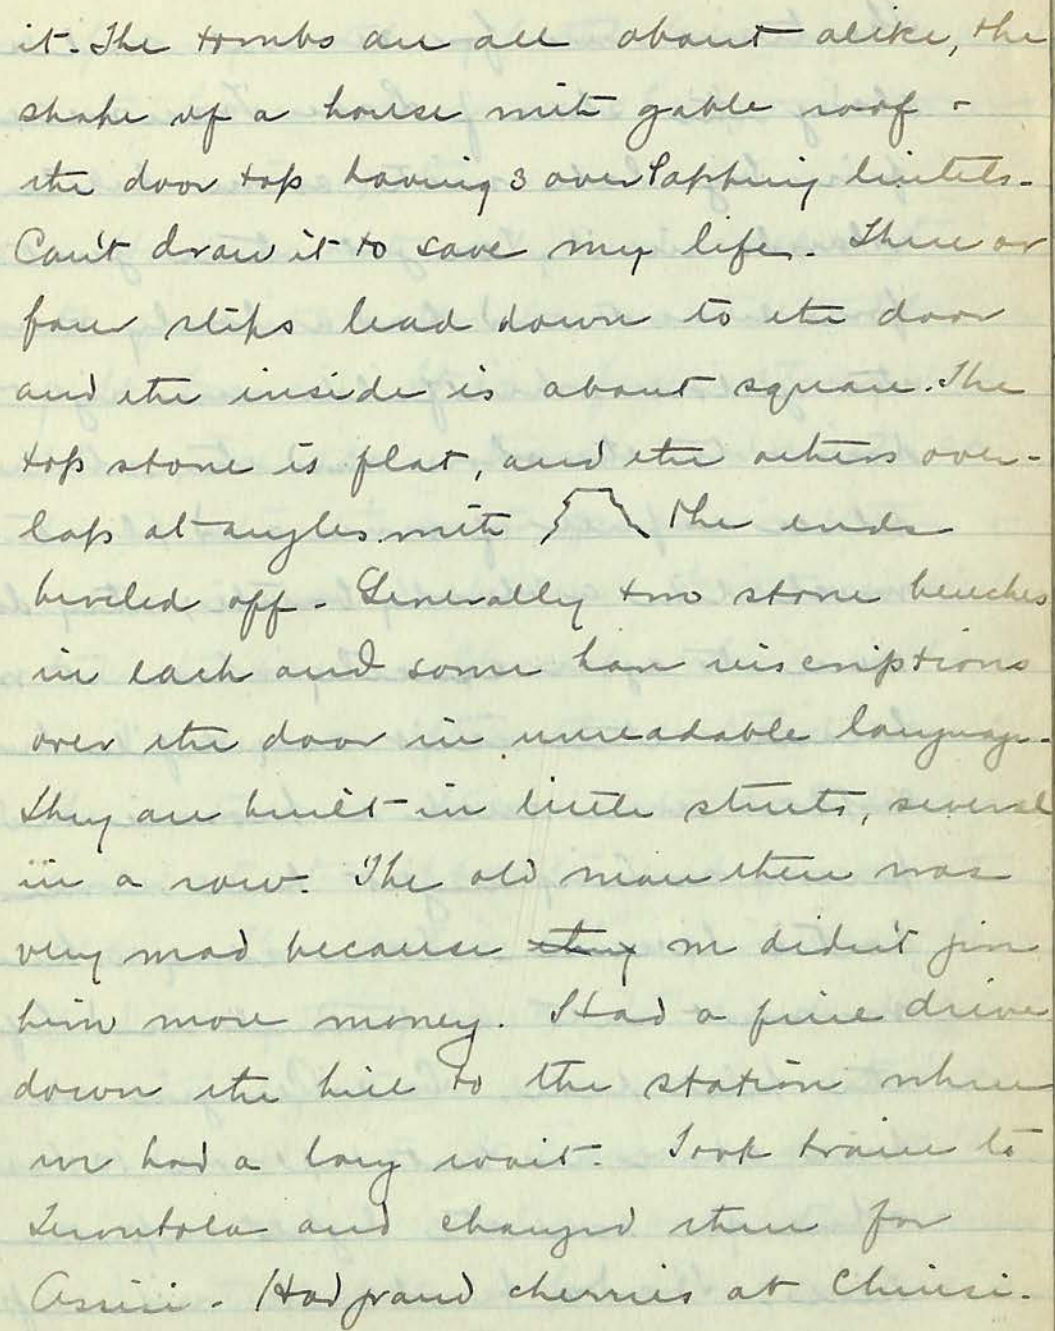 it. The tombs are all about alike, the
shape of a house with gable roof -
the door top having 3 overlapping lintels.
Can't draw it to save my life. Three or
four steps lead down to the door
and the inside is about square. The
top stone is flat, and the others over-
lap at angles with the ends
beveled off - Generally two stone benches
in each and some have inscriptions
over the door in unreadable language.
They are built in little streets, several
in a row. The old man there was
very mad because they we didn't give
him more money. Had a fine drive
down the hill to the station where
we had a long wait. Took train to
Terontola and changed there for
Assisi - Had grand cherries at Chiusi.